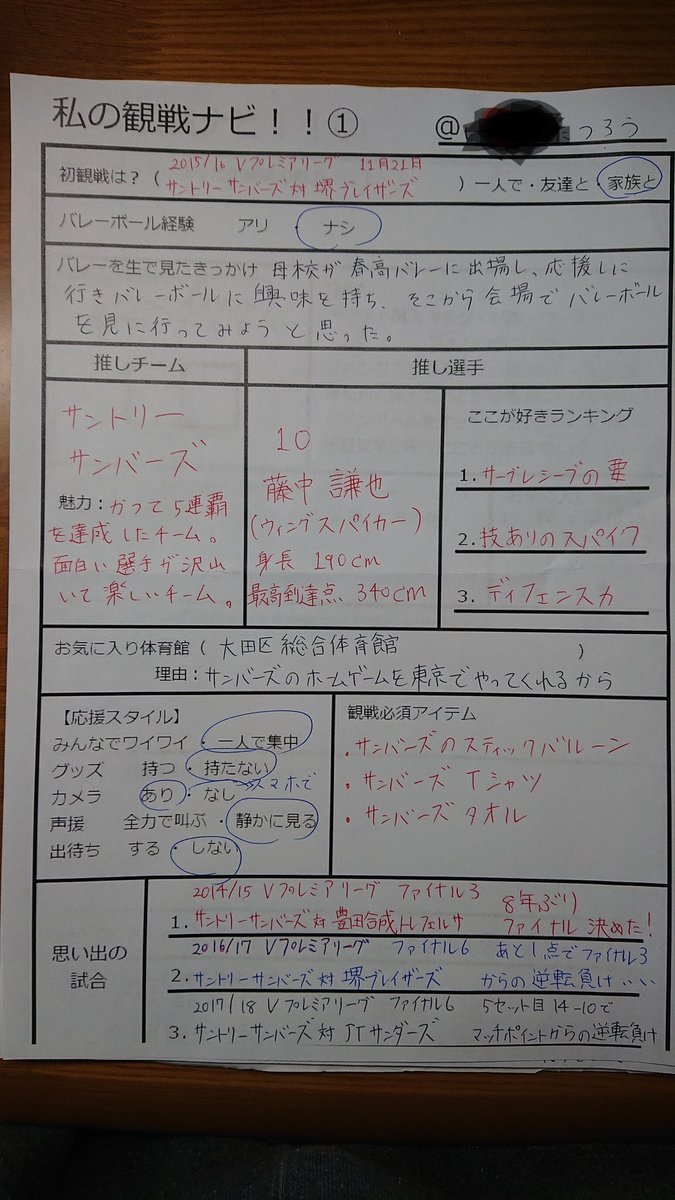 私の観戦ナビ！！①
@ つろう
2015/16 Vプレミアリーグ 11月21日
初観戦は？（サントリーサンバーズ対堺ブレイザーズ）一人で・友達と・家族と
バレーボール経験 アリ ・ ナシ
バレーを生で見たきっかけ 母校が春高バレーに出場し、応援しに
行きバレーボールに興味を持ち、そこから会場でバレーボール
を見に行ってみようと思った。
推しチーム
サントリー
サンバーズ
魅力：かつて5連覇
を達成したチーム。
面白い選手が沢山
いて楽しいチーム。
推し選手
10
藤中 謙也
(ウィングスパイカー)
身長 190cm
最高到達点 340cm
ここが好きランキング
1. サーブレシーブの要
2. 技ありのスパイク
3. ディフェンス力
お気に入り体育館（大田区総合体育館）
理由：サンバーズのホームゲームを東京でやってくれるから
【応援スタイル】
みんなでワイワイ・一人で集中
グッズ 持つ・持たない
カメラ あり・なし スマホで
声援 全力で叫ぶ・静かに見る
出待ち する・しない
観戦必須アイテム
・サンバーズのスティックバルーン
・サンバーズ Tシャツ
・サンバーズ タオル
思い出の
試合
2014/15 Vプレミアリーグ ファイナル3 8年ぶり
1. サントリーサンバーズ対豊田合成トレフェルサ ファイナル決めた！
2016/17 Vプレミアリーグ ファイナル6 あと1点でファイナル3
2. サントリーサンバーズ対堺ブレイザーズ からの逆転負け‥‥
2017/18 Vプレミアリーグ ファイナル6 5セット目14-10で
3. サントリーサンバーズ対JTサンダーズ マッチポイントからの逆転負け